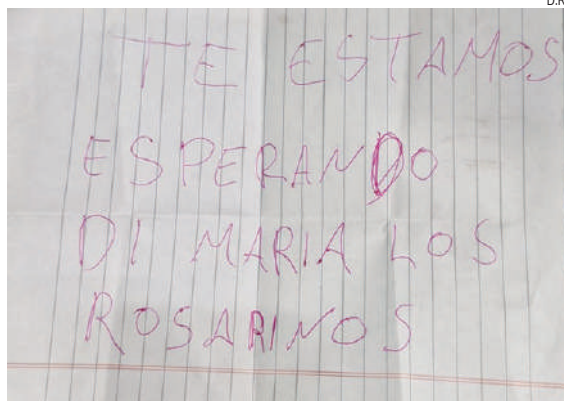 D.R
TE ESTAMOS
ESPERANDO
DI MARIA LOS
ROSARINOS